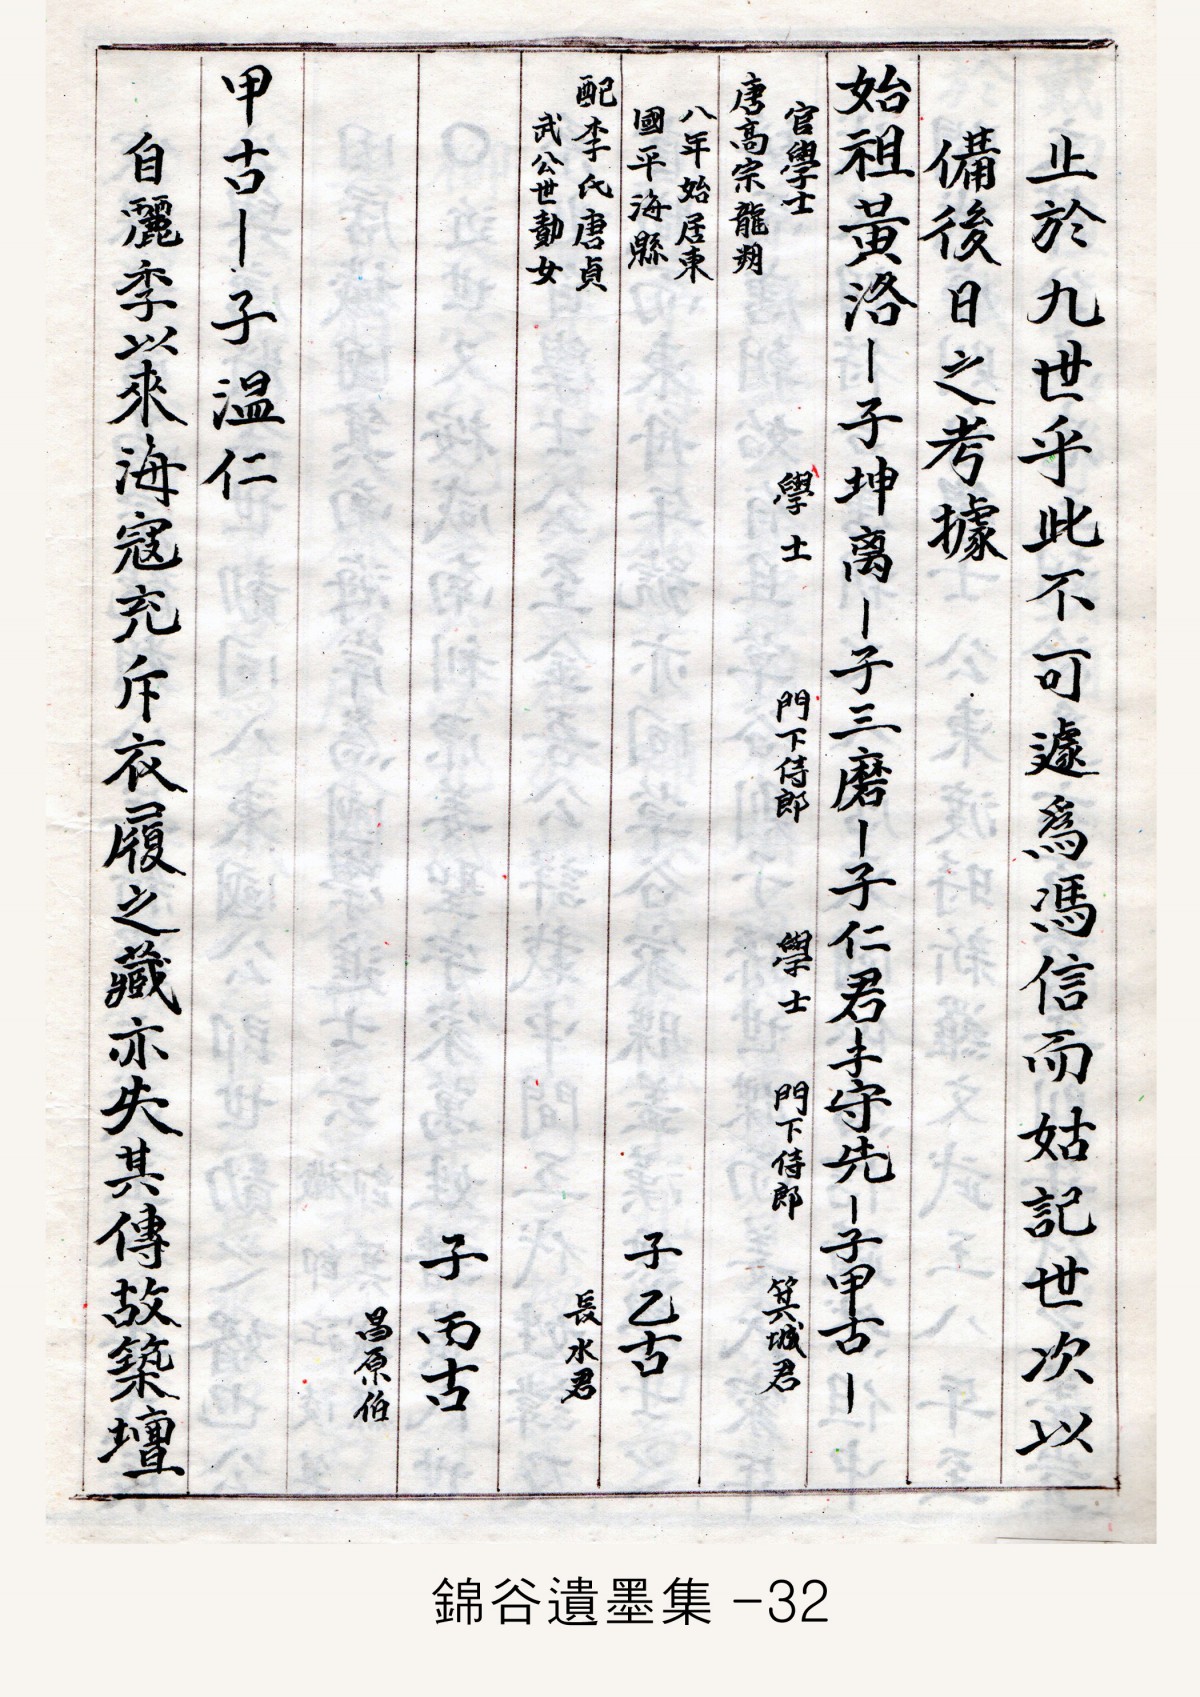 止於九世乎此不可遽爲馮信而姑記世次以
備後日之考據
始祖黃洛ー子坤离ー子三磨ー子仁君ー子守先ー子甲古ー
官學士
學士
門下侍郎
學士
門下侍郎
箕城君
唐高宗龍朔
八年始居東
國平海縣
子乙古
配李氏唐貞
武公世勣女
長水君
子丙古
昌原伯
甲古ー子溫仁
自麗季以來海寇充斥衣履之藏亦失其傳故築壇
錦谷遺墨集 -32